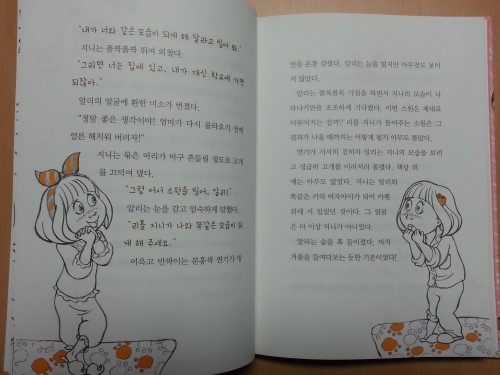 "내가 너와 같은 모습이 되게 해 달라고 빌어 봐."
지니는 폴짝폴짝 뛰며 외쳤다.
"그러면 너는 집에 있고, 내가 대신 학교에 가면
되잖아."
알리의 얼굴에 환한 미소가 번졌다.
"정말 좋은 생각이야! 엄마가 다시 올라오기 전에
얼른 해치워 버리자!"
지니는 묶은 머리가 마구 흔들릴 정도로 고개
를 끄덕여 댔다.
"그럼 어서 소원을 빌어, 알리!"
알리는 눈을 감고 엄숙하게 말했다.
"리틀 지니가 나와 똑같은 모습이 되
게 해 주세요."
이윽고 반짝이는 분홍색 연기가 방
안을 온통 감쌌다. 알리는 눈을 떴지만 아무것도 보이
지 않았다.
알리는 콜록콜록 기침을 하면서 지니의 모습이 나
타나기만을 초조하게 기다렸다. 이번 소원은 제대로
이루어지는 걸까? 리틀 지니가 들어주는 소원은 그
결과가 나올 때까지는 어떻게 될지 아무도 몰랐다.
연기가 서서히 걷히자 알리는 지니의 모습을 보려
고 성급히 고개를 이리저리 돌렸다. 책상 위
에는 아무도 없었다. 지니는 알리와
똑같은 키의 여자아이가 되어 카펫
위에 서 있었던 것이다. 그 얼굴
은 더 이상 지니가 아니었다.
알리는 숨을 훅 들이켰다. 마치
거울을 들여다보는 듯한 기분이었다!